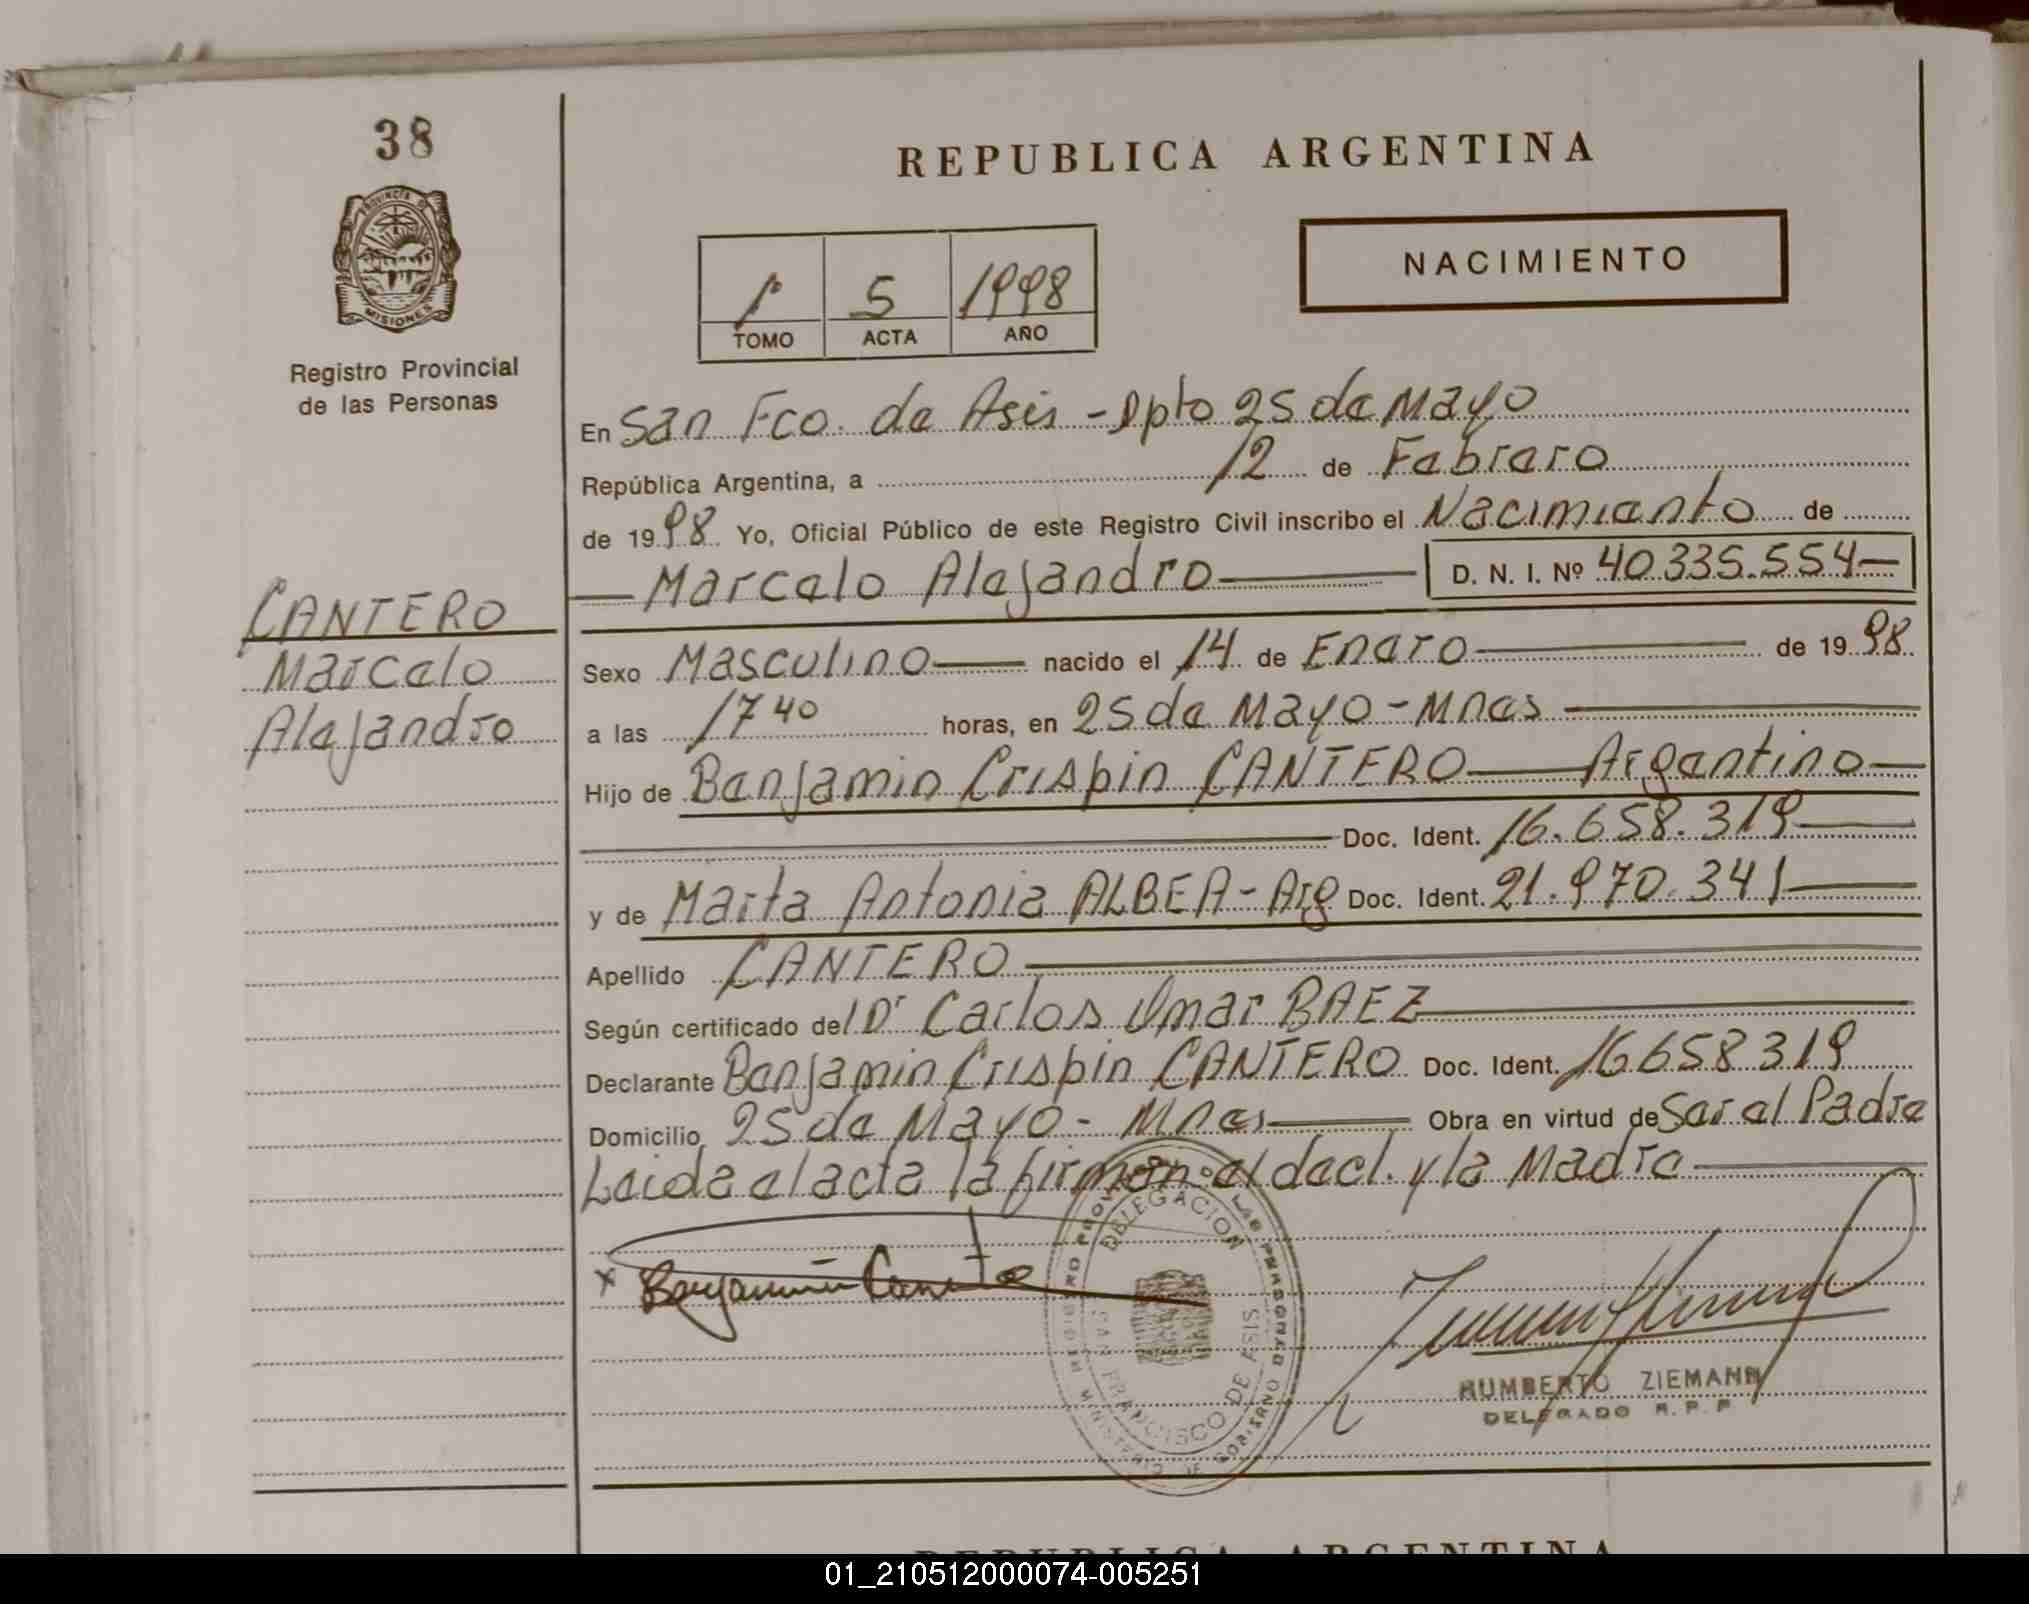 38
REPUBLICA ARGENTINA
PROVINCIA DE
MISIONES
Registro Provincial
de las Personas
NACIMIENTO
1º 5 1998
TOMO ACTA AÑO
En San Fco. de Asis - Dpto 25 de Mayo
República Argentina, a 12 de Febrero
de 1998 Yo, Oficial Público de este Registro Civil inscribo el Nacimiento de
Marcelo Alejandro D. N. I. Nº 40.335.554
CANTERO
Marcelo
Alejandro
Sexo Masculino nacido el 14 de Enero de 1998
a las 17 40 horas, en 25 de Mayo - Mnes
Hijo de Benjamin Crispin CANTERO Argentino
Doc. Ident. 16.658.319
y de Marta Antonia ALBEA - Arg Doc. Ident. 21.970.341
Apellido CANTERO
Según certificado del Dr Carlos Omar BAEZ
Declarante Benjamin Crispin CANTERO Doc. Ident. 16658319
Domicilio 25 de Mayo - Mnes Obra en virtud de Ser el Padre
Leida el acta la firman el decl. y la Madre
x Benjamin Cantero
DELEGACION
SAN FRANCISCO DE ASIS
HUMBERTO ZIEMANN
DELEGADO R. P. P.
REPUBLICA ARGENTINA
01_210512000074-005251